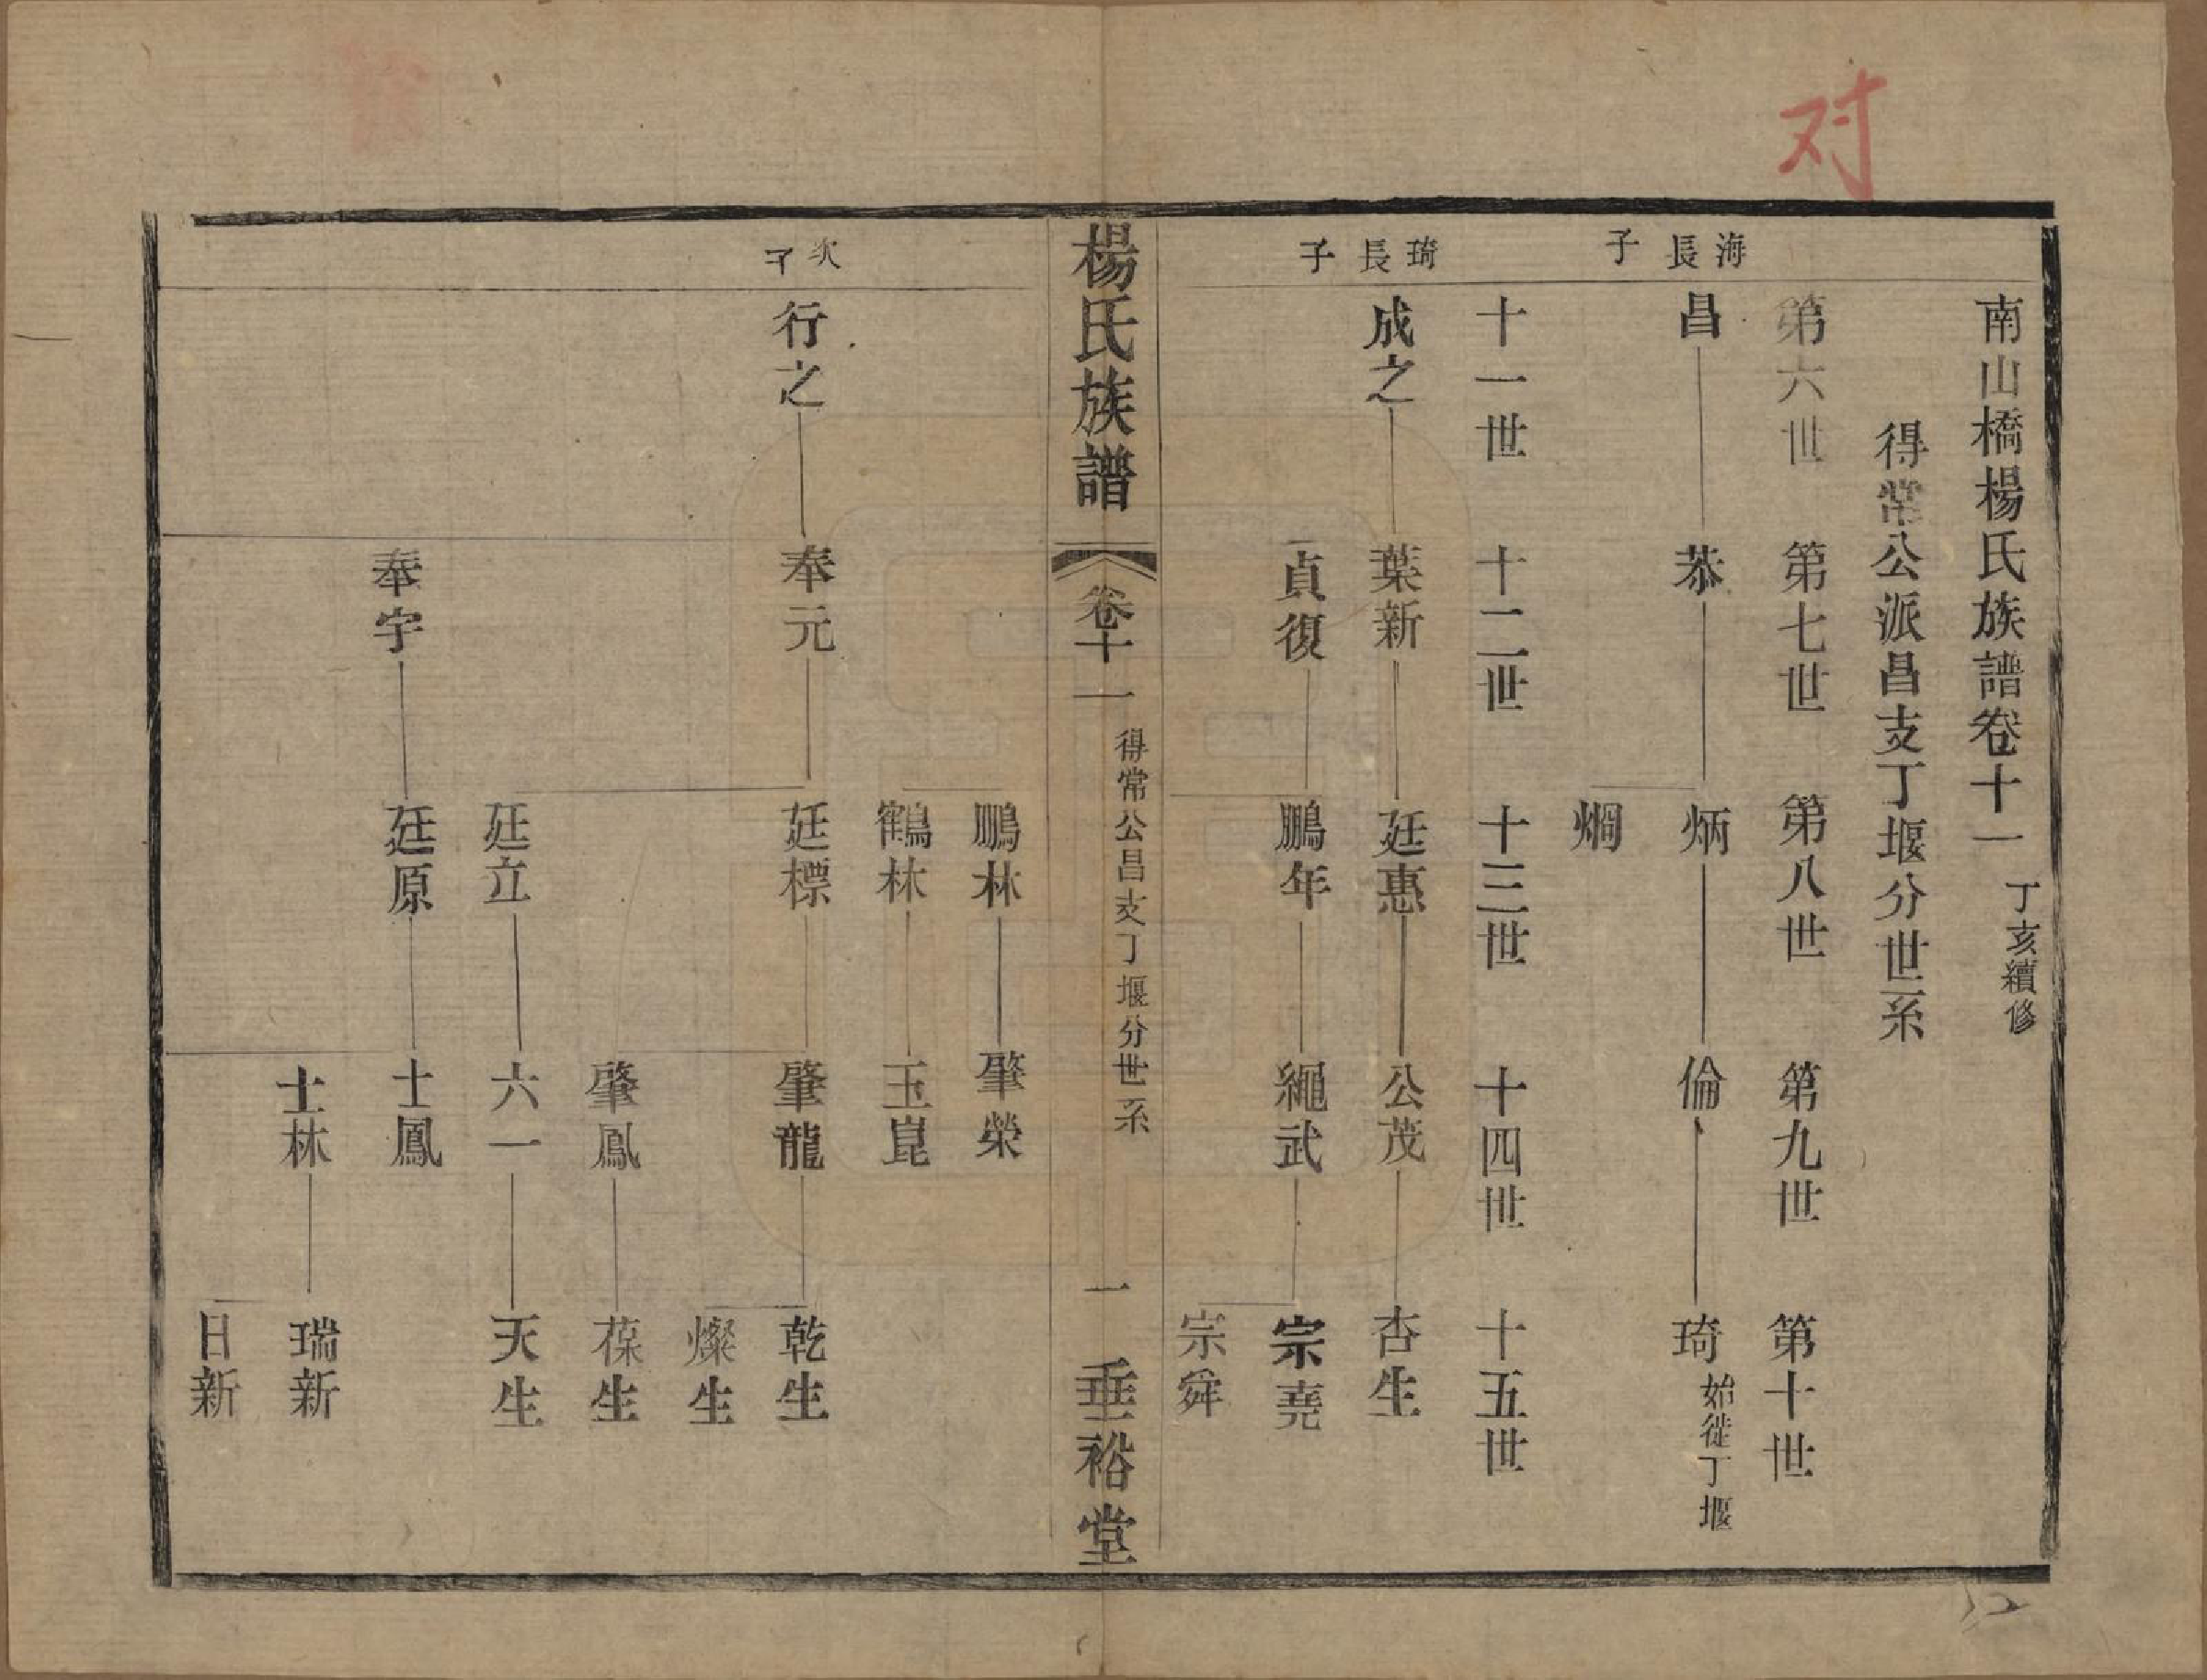 对
南山橋楊氏族譜卷十一 丁亥續修
得常公派昌支丁堰分世系
第六世 第七世 第八世 第九世 第十世
海長子
昌 恭 炳 倫 琦 始徙丁堰
烱
十一世 十二世 十三世 十四世 十五世
琦長子
成之 葉新 廷惠 公茂 杏生
貞復 鵬年 繩武 宗堯
宗舜
楊氏族譜 卷十一 得常公昌支丁堰分世系 一 垂裕堂
鵬林 肇榮
鶴林 玉崑
次子
行之 奉元 廷標 肇龍 乾生
燦生
肇鳳 葆生
廷立 六一 天生
奉宇 廷原 士鳳
士林 瑞新
日新